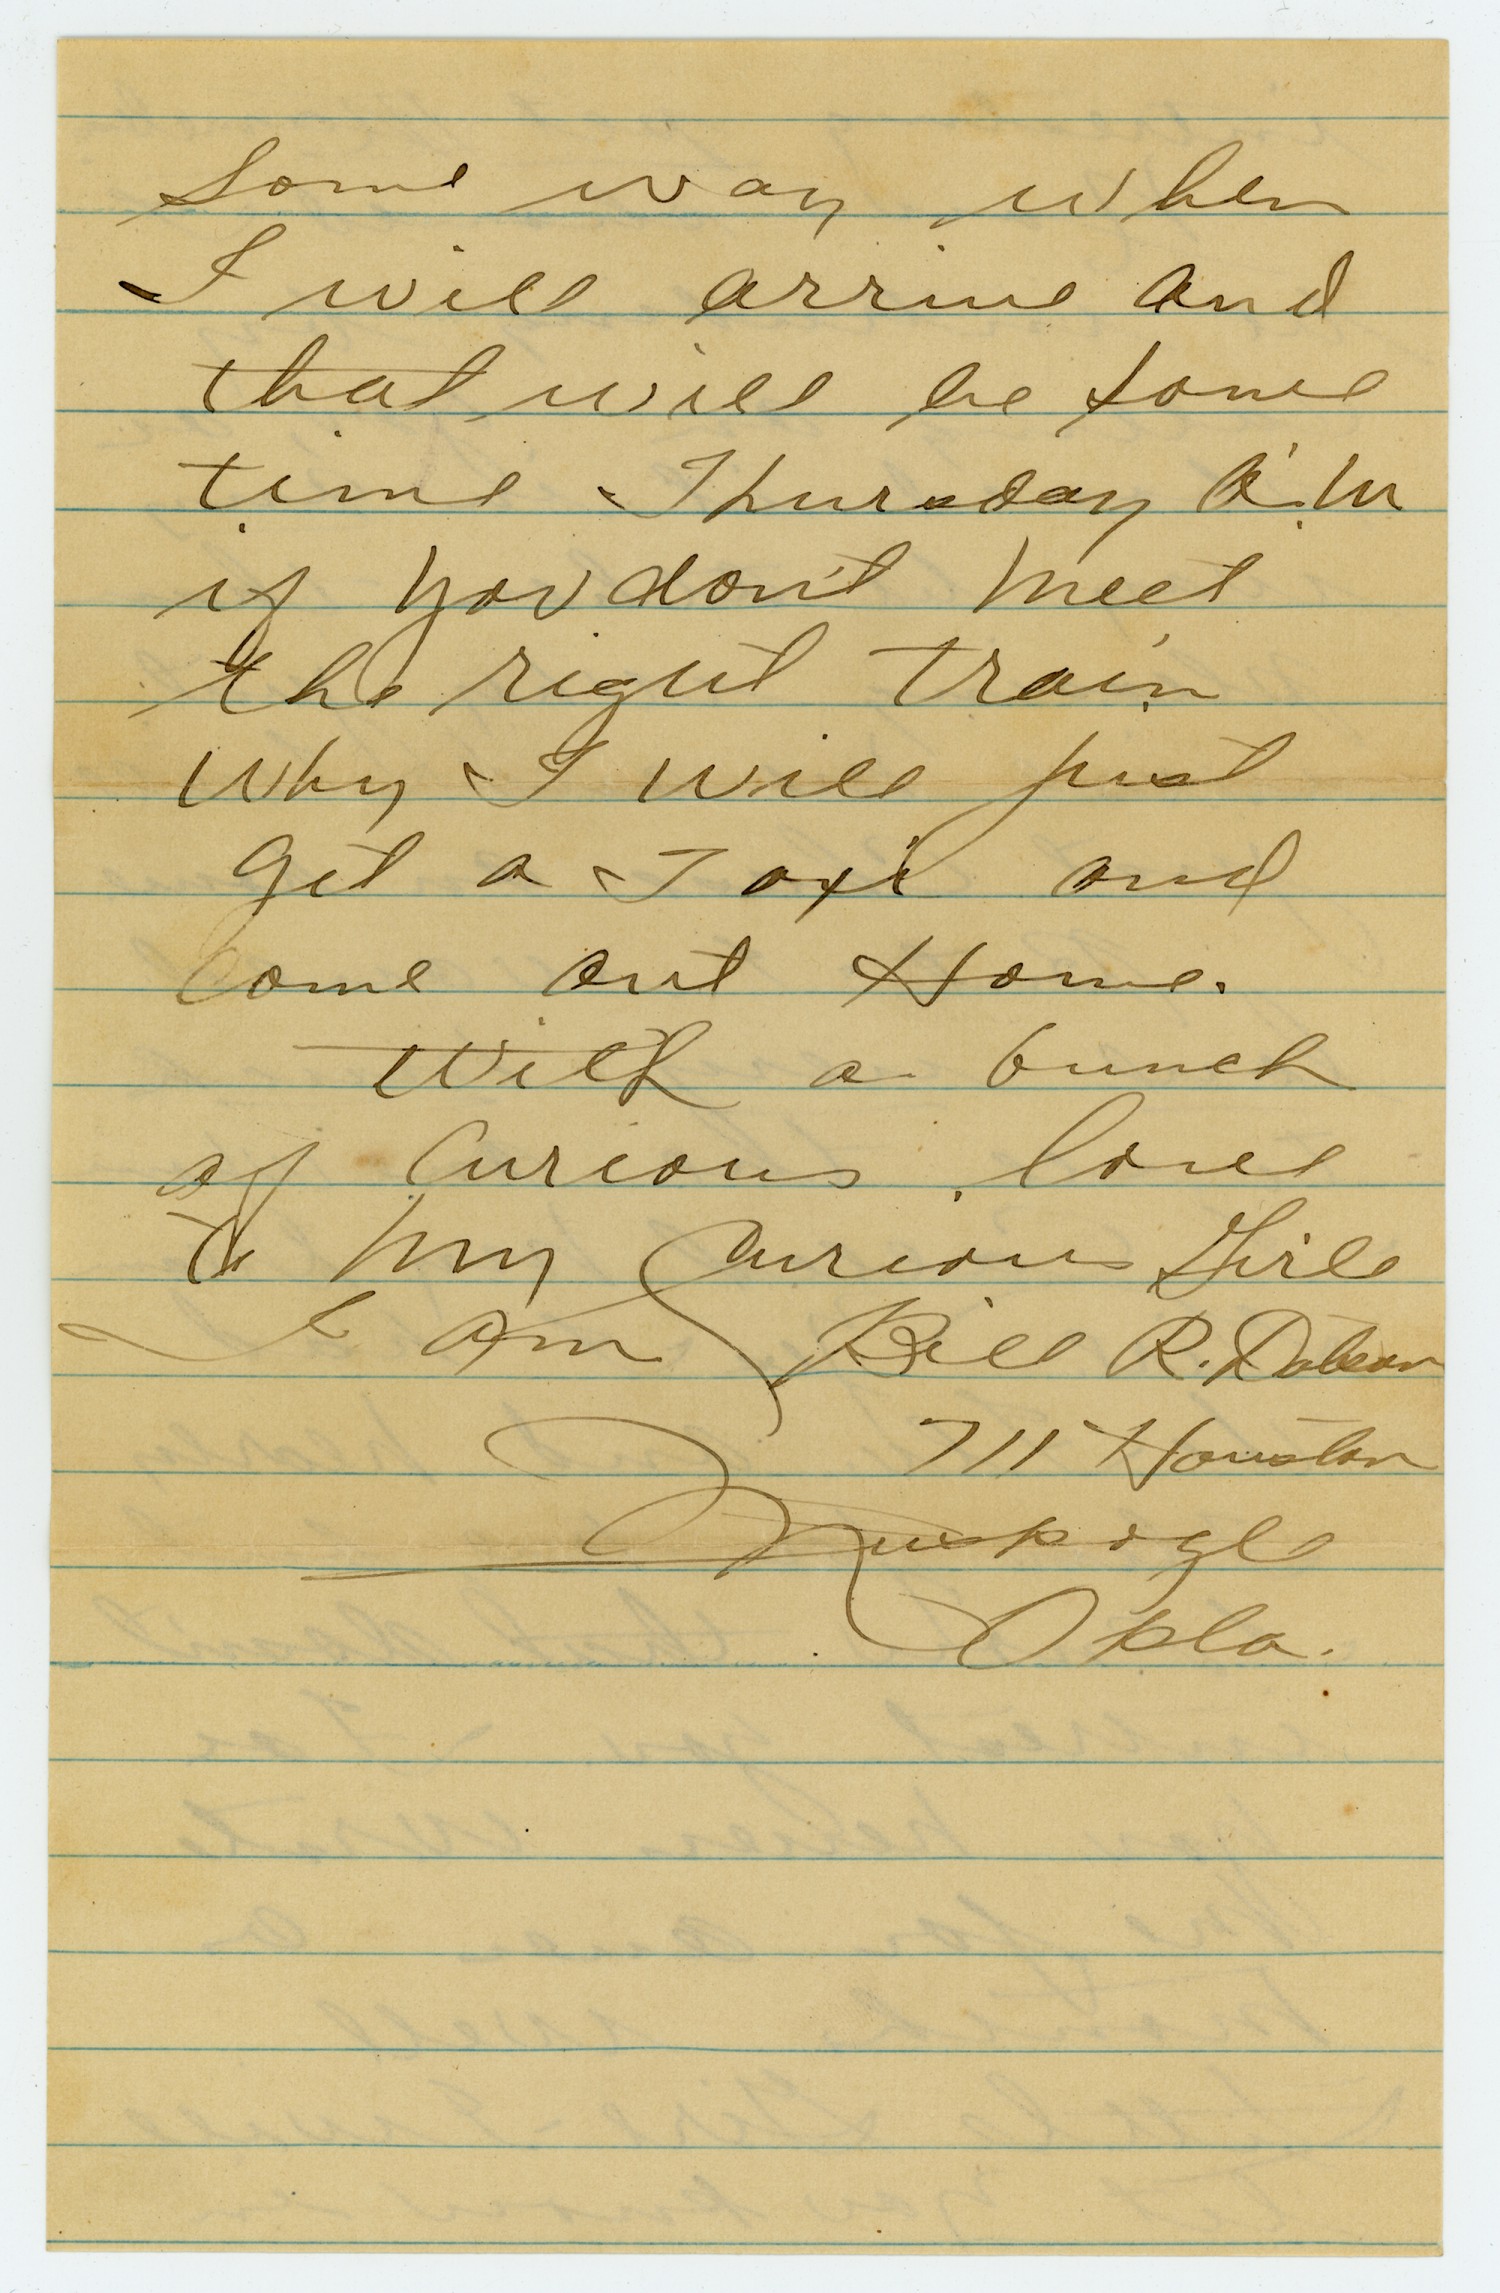 some way when
I will arrive and
that will be some
time Thursday A.M
if you don't meet
the right train
why I will just
get a Taxi and
come out Home.
With a bunch
of Curious love
to my Curious Girl
I am Bill R. Dobson
711 Houston
Muskogee
Okla.